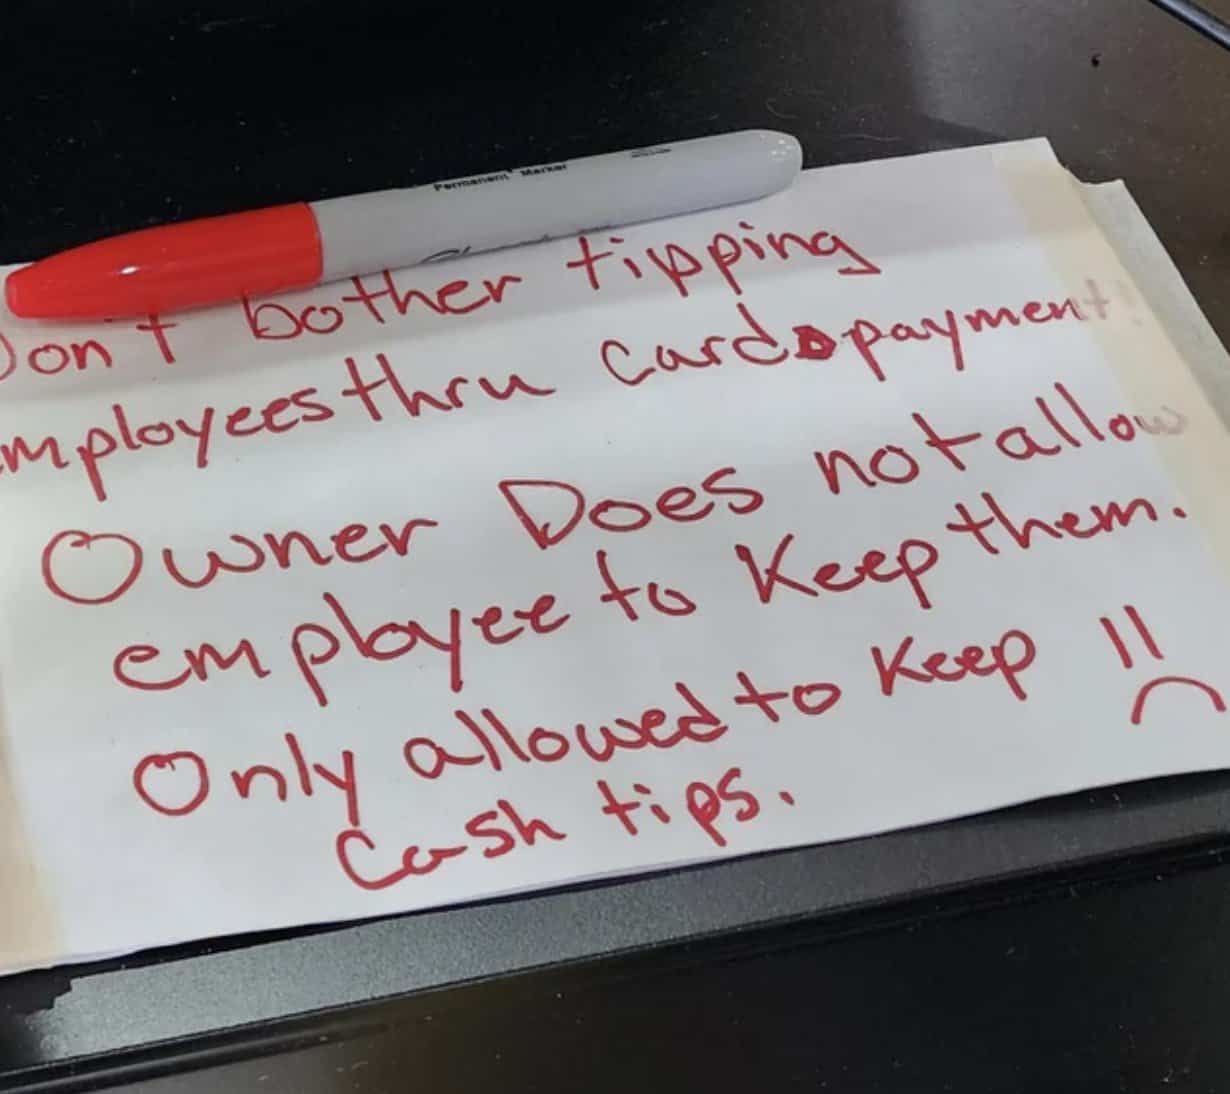 Permanent Marker
Don't bother tipping
employees thru card payment!
Owner Does not allow
employee to keep them.
Only allowed to keep
Cash tips.